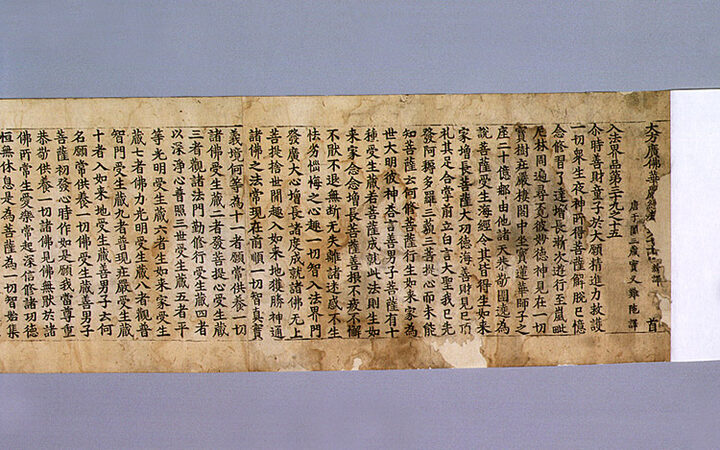 大方廣佛華嚴經
唐于闐三藏實叉難陀譯
首
入法界品第三十九之十五
尒時善財童子於大願精進力救護
一切衆生夜神所得菩薩解脫已憶
念修習了達增長漸次遊行至嵐毗
尼林周遍尋覓彼妙德神見在一切
寶樹莊嚴樓閣中坐寶蓮華師子之
座二十億那由他諸天恭敬圍遶為
說菩薩受生海經令其皆得生如來
家增長菩薩大功德海善財見已頂
礼其足合掌前立白言大聖我已先
發阿耨多羅三藐三菩提心而未能
知菩薩云何修菩薩行生如來家為
世大明彼神答言善男子菩薩有十
種受生藏若菩薩成就此法則生如
來家念念增長菩薩善根不疲不懈
不猒不退無斷無失離諸迷惑不生
怯劣惱悔之心趣一切智入法界門
發廣大心增長諸度成就諸佛无上
菩提捨世間趣入如來地獲勝神通
諸佛之法常現在前順一切智真實
義境何等為十一者願常供養一切
諸佛受生藏二者發菩提心受生藏
三者觀諸法門勤修行受生藏四者
以深淨心普照三世受生藏五者平
等光明受生藏六者生如來家受生
藏七者佛力光明受生藏八者觀普
智門受生藏九者普現莊嚴受生藏
十者入如來地受生藏善男子云何
名願常供養一切佛受生藏善男子
菩薩初發心時作如是願我當尊重
恭敬供養一切諸佛見佛無猒於諸
佛所常生愛樂常起深信修諸功德
恒無休息是為菩薩為一切智始集